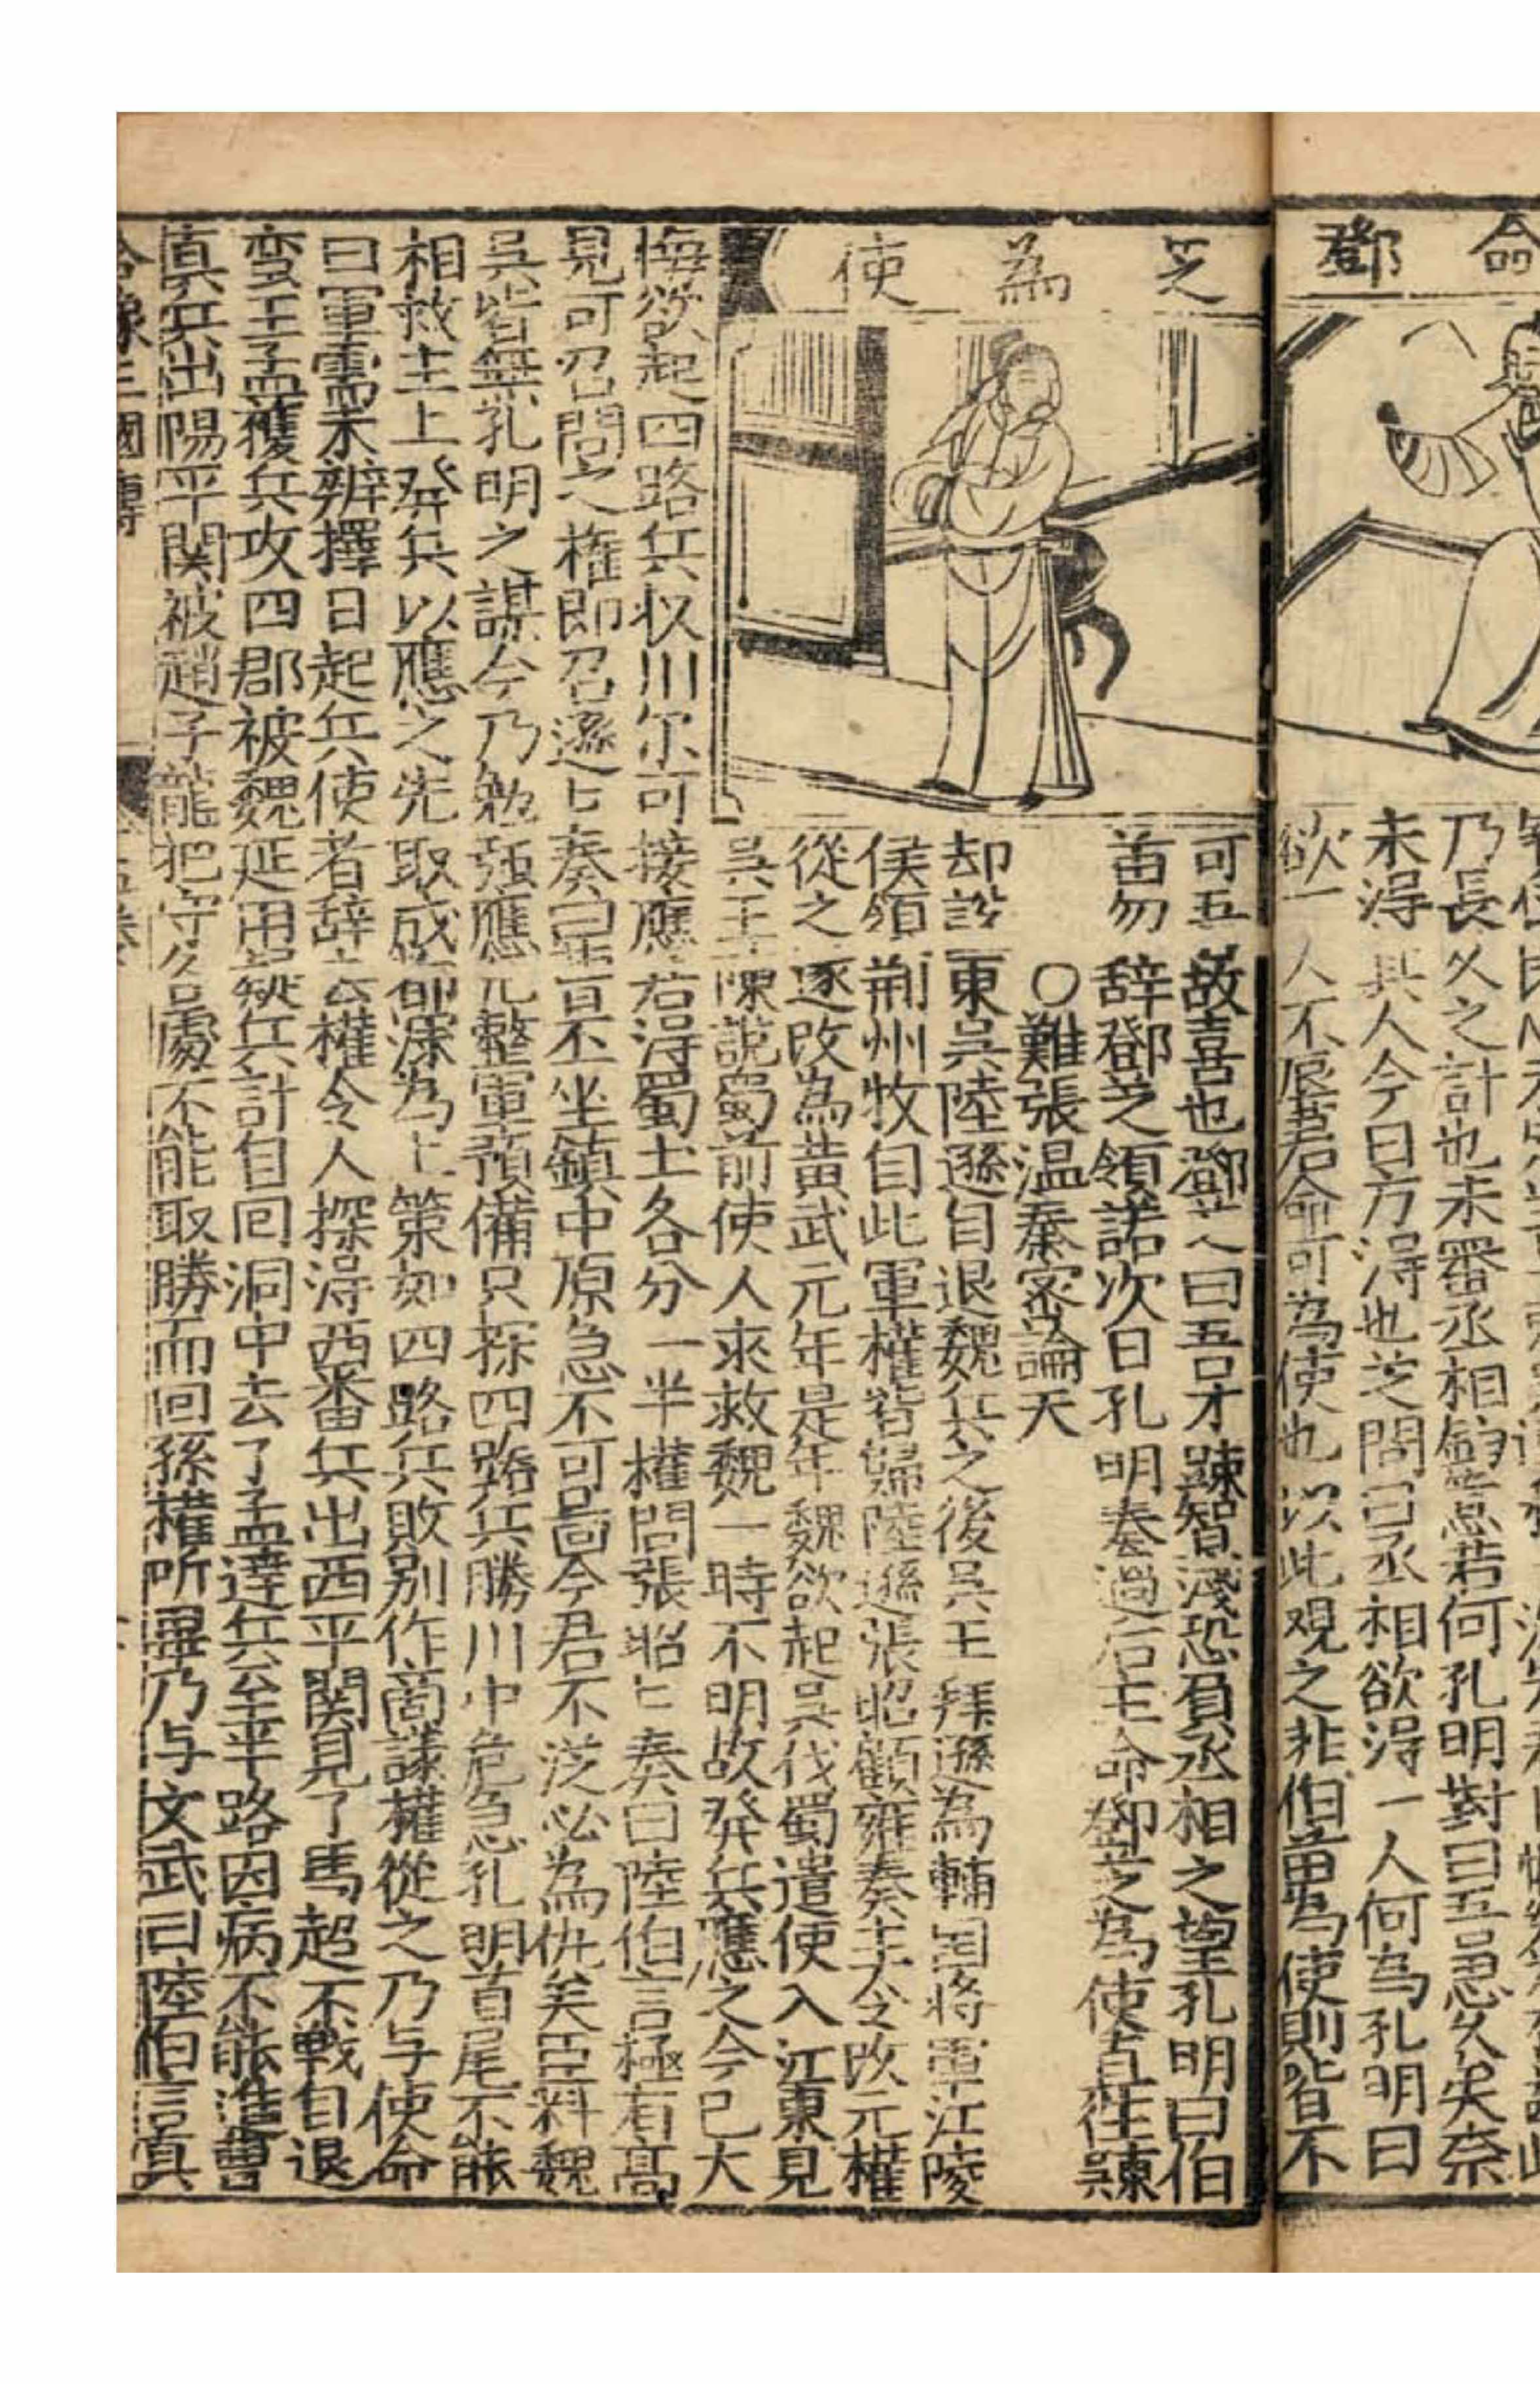 命鄧
芝為使
乃長久之計也未審丞相鈞意若何孔明對曰吾思久矣奈
未淂其人今日方淂也芝問曰丞相欲淂一人何為孔明曰
欲一人不辱君命可為使也以此观之非伯苗為使則皆不
可吾故喜也鄧芝〻曰吾才踈智淺恐負丞相之望孔明曰伯
苗勿辞鄧芝領諾次日孔明奏過后主命鄧芝為使直往吳踈
〇難張温秦宓論天
却說東吳陸遜自退魏兵之後吳王拜遜為輔国將軍江陵
侯領荆州牧自此軍權皆歸陸遜張昭顧雍奏王令改元權
從之遂改為黄武元年是年魏欲起吳伐蜀遣使入江東見
吳王陳說蜀前使人求救魏一時不明故発兵應之今已大
悔欲起四路兵收川尔可接應若淂蜀土各分一半權問張昭〻奏曰陸伯言極有高
見可召問之權即召遜〻奏曰曹丕坐鎮中原急不可啚今君不從必為仇矣臣料魏
吳皆無孔明之謀今乃勉強應允整軍預備只探四路兵勝川中危急孔明首尾不能
相救主上発兵以應之先取成都深為上策如四路兵敗别作商議權從之乃与使命
曰軍需未辨擇日起兵使者辞去權令人探淂西番兵出西平関見了馬超不戰自退
蛮王孟獲兵攻四郡被魏延用疑兵計自回洞中去了孟達兵至半路因病不能進曹
真兵出陽平関被趙子龍把守各處不能取勝而回孫權听畢乃与文武曰陸伯言真